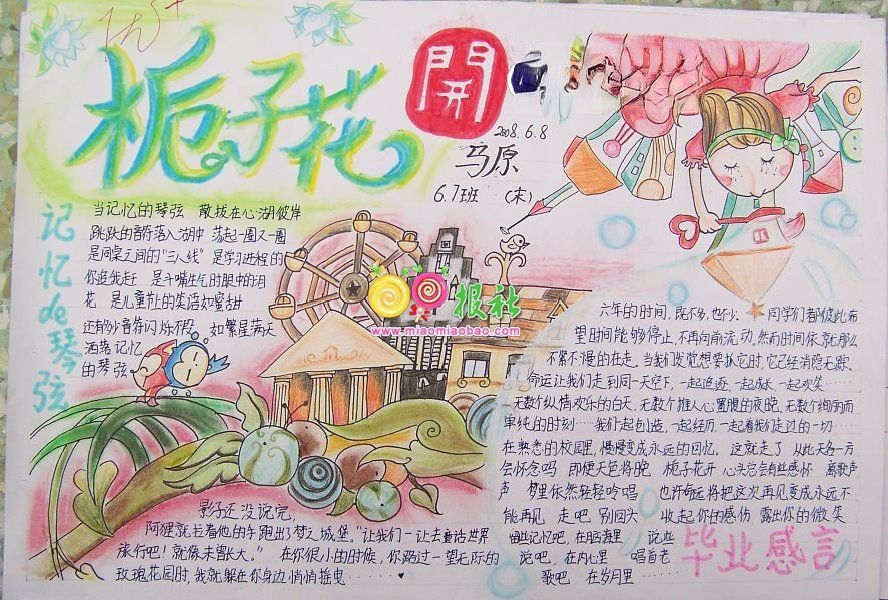 优+
栀子花
開
2008.6.8
马原
6.7班 (末)
记忆de琴弦
当记忆的琴弦 散拨在心湖彼岸
跳跃的音符落入湖中 荡起一圈又一圈
是同桌之间的“三八线” 是学习进程的
你追我赶 是斗嘴生气时眼中的泪
花 是儿童节上的笑语如蜜甜
还有多少音符闪烁不段 如繁星满天
洒落记忆
的琴弦
报社
www.miaomiaobao.com
影子还没说完,
阿狸就拉着他的手跑出了梦之城堡。“让我们一让去童话世界
旅行吧!就像未曾长大。” 在你很小的时候,你路过一望无际的
玫瑰花园时,我就躲在你身边悄悄摇曳……
六年的时间,既不多,也不少. 同学们都彼此希
望时间能够停止,不再向前流动,然而时间依就那么
不紧不慢的在走。当我们发觉想要抓它时,它已经消隐无踪.
命运让我们走到同一天空下,一起追逐 一起成长 一起欢笑……
无数个纵情欢乐的白天,无数个推人心置腹的夜晚,无数个绚丽而
单纯的时刻……我们一起创造,一起经历,一起看我们走过的一切……
在熟悉的校园里,慢慢变成永远的回忆。 这就走了 从此天各一方
会怀念吗 即便天色将晚 栀子花开 心头总会有些感怀 离歌声
声 梦里依然轻轻吟唱 也许每远将把这次再见变成永远不
能再见 走吧 别回头 收起你的感伤 露出你的微笑
记忆吧,在脑海里 说些
说吧,在内心里 唱首老
歌吧 在岁月里……
毕业感言